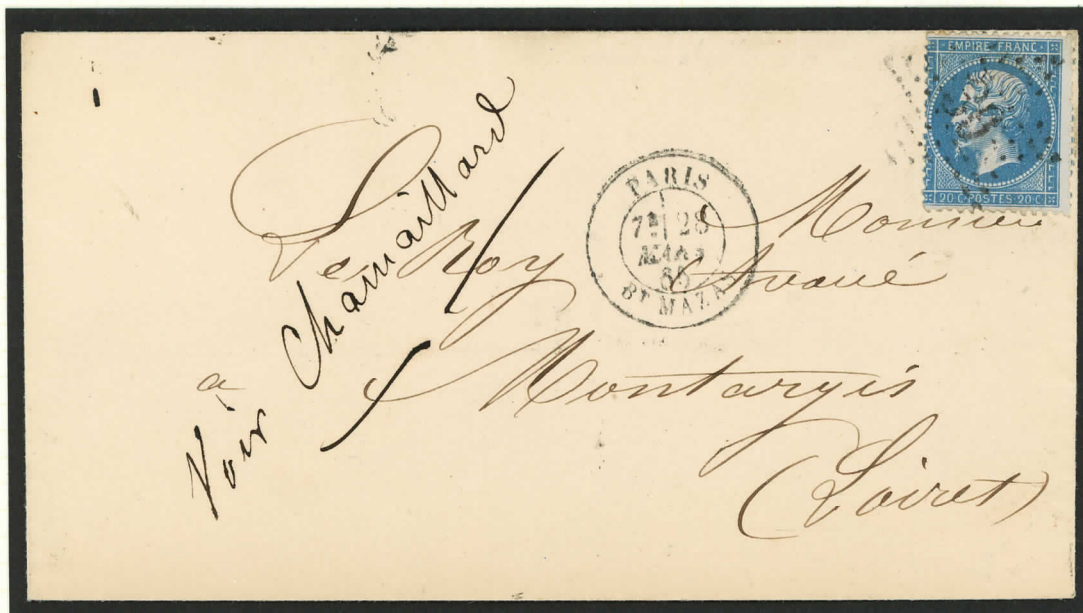 EMPIRE FRANC
20 C POSTES 20 C
PARIS
7E 28
MARS
65
BT MAZAS
Monsieur
De Roy Avoué
à Montargis
(Loiret)
Voir Chamaillard